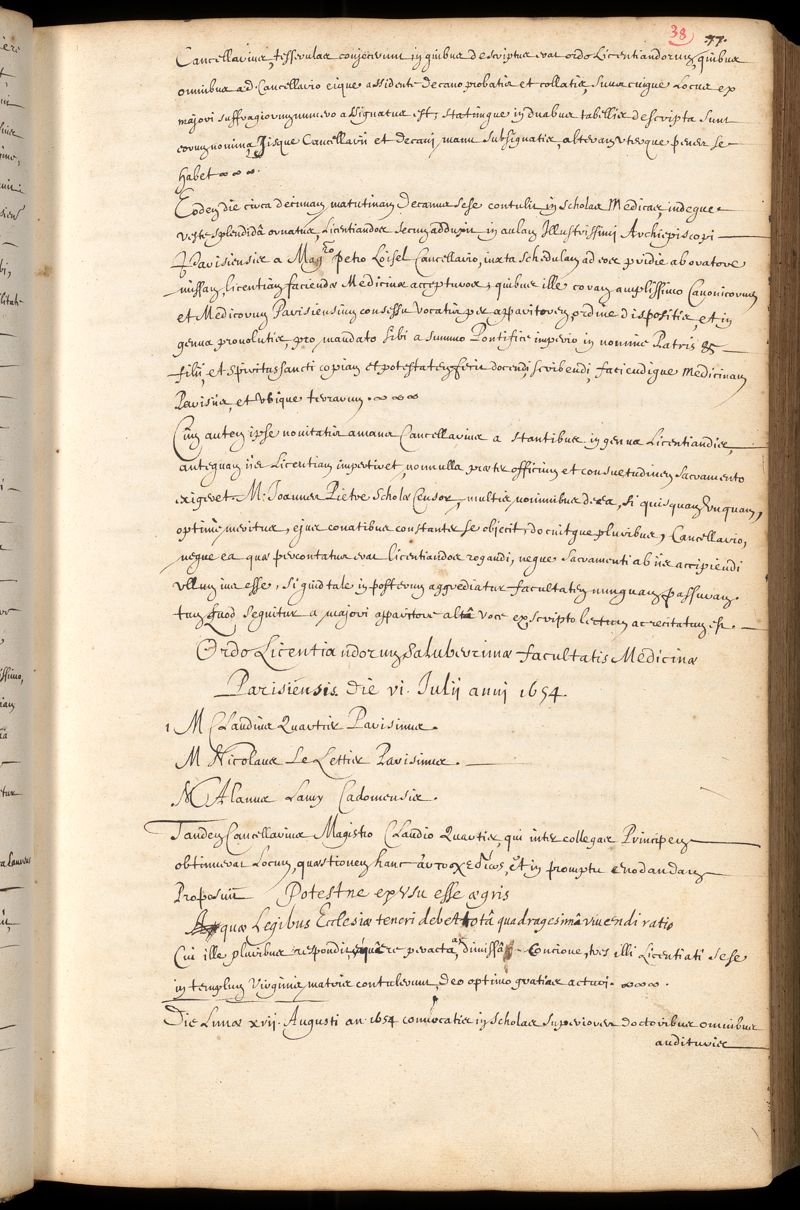 38 77.
Cancellarius, tesserulae conjecerunt in quibus descriptus erat ordo Licentiandorum, quibus
omnibus ad Cancellario eique assidente decano probatis et collatis, suus cuique Locus ex
majori suffragiorum numero assignatus est, statimque in duabus tabellis descripta sunt
eorum nomina, Iisque Cancellarii et decani manu subsignatis, alteram Uterque penes se
habet
Eodem die circa decimam matutinam Decanus sese contulit in scholas Medicas, indeque
veste splendidâ ornatus, Licentiandos secum adduxit in aulam Illustrissimi Archiepiscopi
Parisiensis a Magro petro Loisel Cancellario, iuxta schedulam ad eos pridie ab oratore
missam, licentiam faciendae Medicinae accepturos; quibus ille coram amplissimo Canonicorum
et Medicorum Parisiensium consessu vocatis per apparitorem ordine dispositis, et in
genua provolutis, pro mandato sibi a summo Pontifice imperio in nomine Patris &
filii, et spiritus sancti copiam et potestatem fecit docendi, scribendi, faciendique Medicinam
Parisiis, et Ubique terrarum.
Cum autem ipse novitatis amans Cancellarius a stantibus in genua Licentiandis,
antequam iis Licentiam impertiret, nonnulla praeter officium et consuetudinem sacramento
exigeret M. Joannes Pietre Scholae Censor, multis nominibus de ea, si quisquam Unquam,
optime meritus, ejus conatibus constanter se objecit, docuitque pluribus, Cancellario,
neque ea quae percontatus erat licentiandos rogandi, neque sacramenti ab iis accipiendi
Ullum ius esse, si quid tale in posterum aggrediatur facultatem nunquam passuram.
tum Quod sequitur a majori apparitore altâ voce ex scripto lectum ac recitatum est.
Ordo Licentiandorum Saluberrimae facultatis Medicinae
Parisiensis die vi. Julij anni 1654.
1 M Claudius Quartier Parisinus.
M Nicolaus Le Lettier Parisinus.
M Alanus Lamy Cadomensis.
Tandem Cancellarius Magistro Claudio Quartier, qui inter collegas Principem
obtinuerat Locum, quaestionem hanc αὐτοσχεδίως, et in promptu enodandam
Proposuit Potestne ex Usu esse aegris
quae Legibus Ecclesiae teneri debet totâ quadragesimâ vivendi ratio
Cui ille pluribus respondit, quâ re peracta, dimissâ concione, tres illi Licentiati sese
in templum Virginis matris contulerunt, deo optimo gratias acturi.
Die Lunae xvii. Augusti an. 1654 convocatis in scholas superiores doctoribus omnibus
audituris